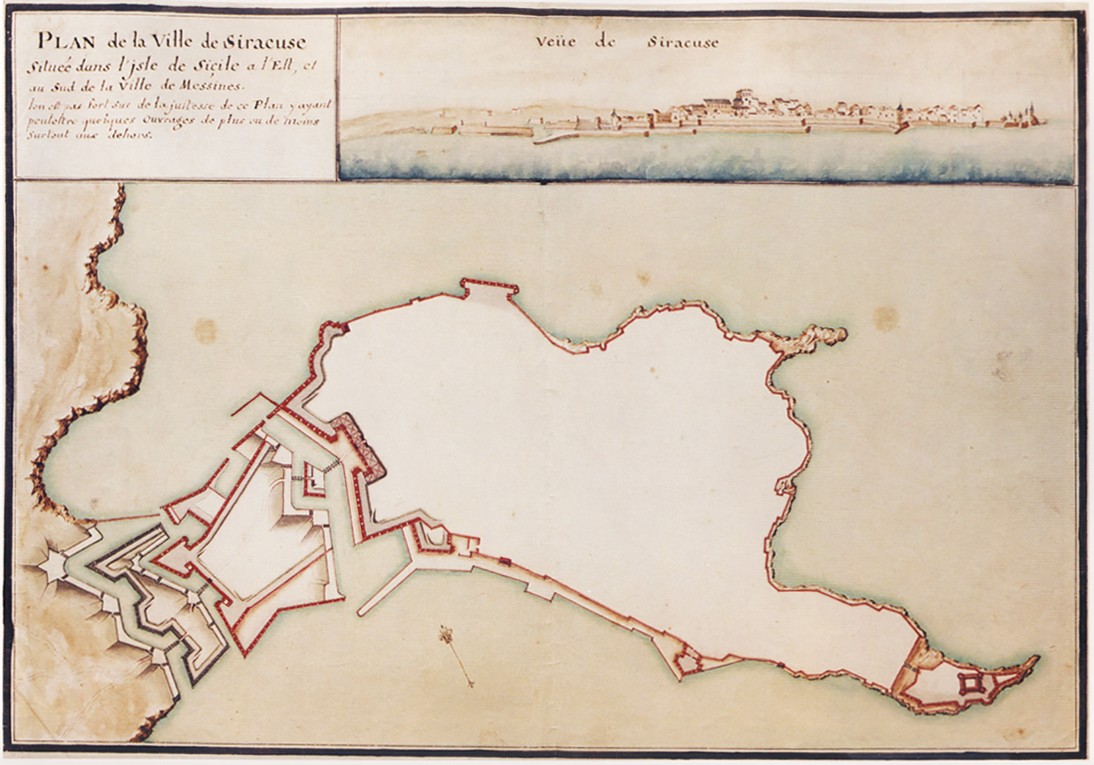 PLAN de la Ville de Siracuse
Situeé dans l'jsle de Siçile a l'Est, et
au Sud de la Ville de Messines.
lon est pas fort sur de la justesse de ce Plan y ayant
peutestre quelques Ouvrages de plus ou de moins
surtout aux dehors.
Veüe de Siracuse